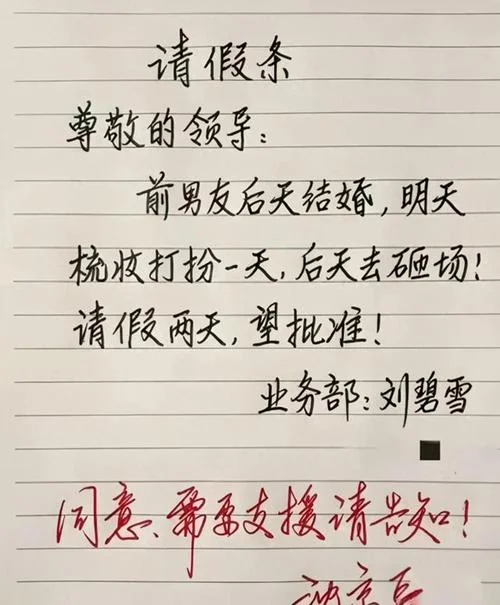 请假条
尊敬的领导：
前男友后天结婚，明天
梳妆打扮一天，后天去砸场！
请假两天，望批准！
业务部：刘碧雪
同意、需要支援请告知！